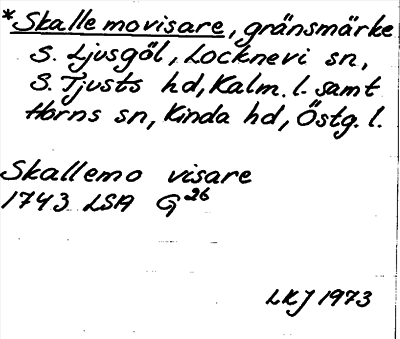 *Skallemovisare, gränsmärke
S. Ljusgöl, Locknevi sn,
S. Tjusts hd, Kalm. l. samt
Horns sn, Kinda hd, Östg. l.
Skallemo visare
1743 LSA G 26
LKJ 1973